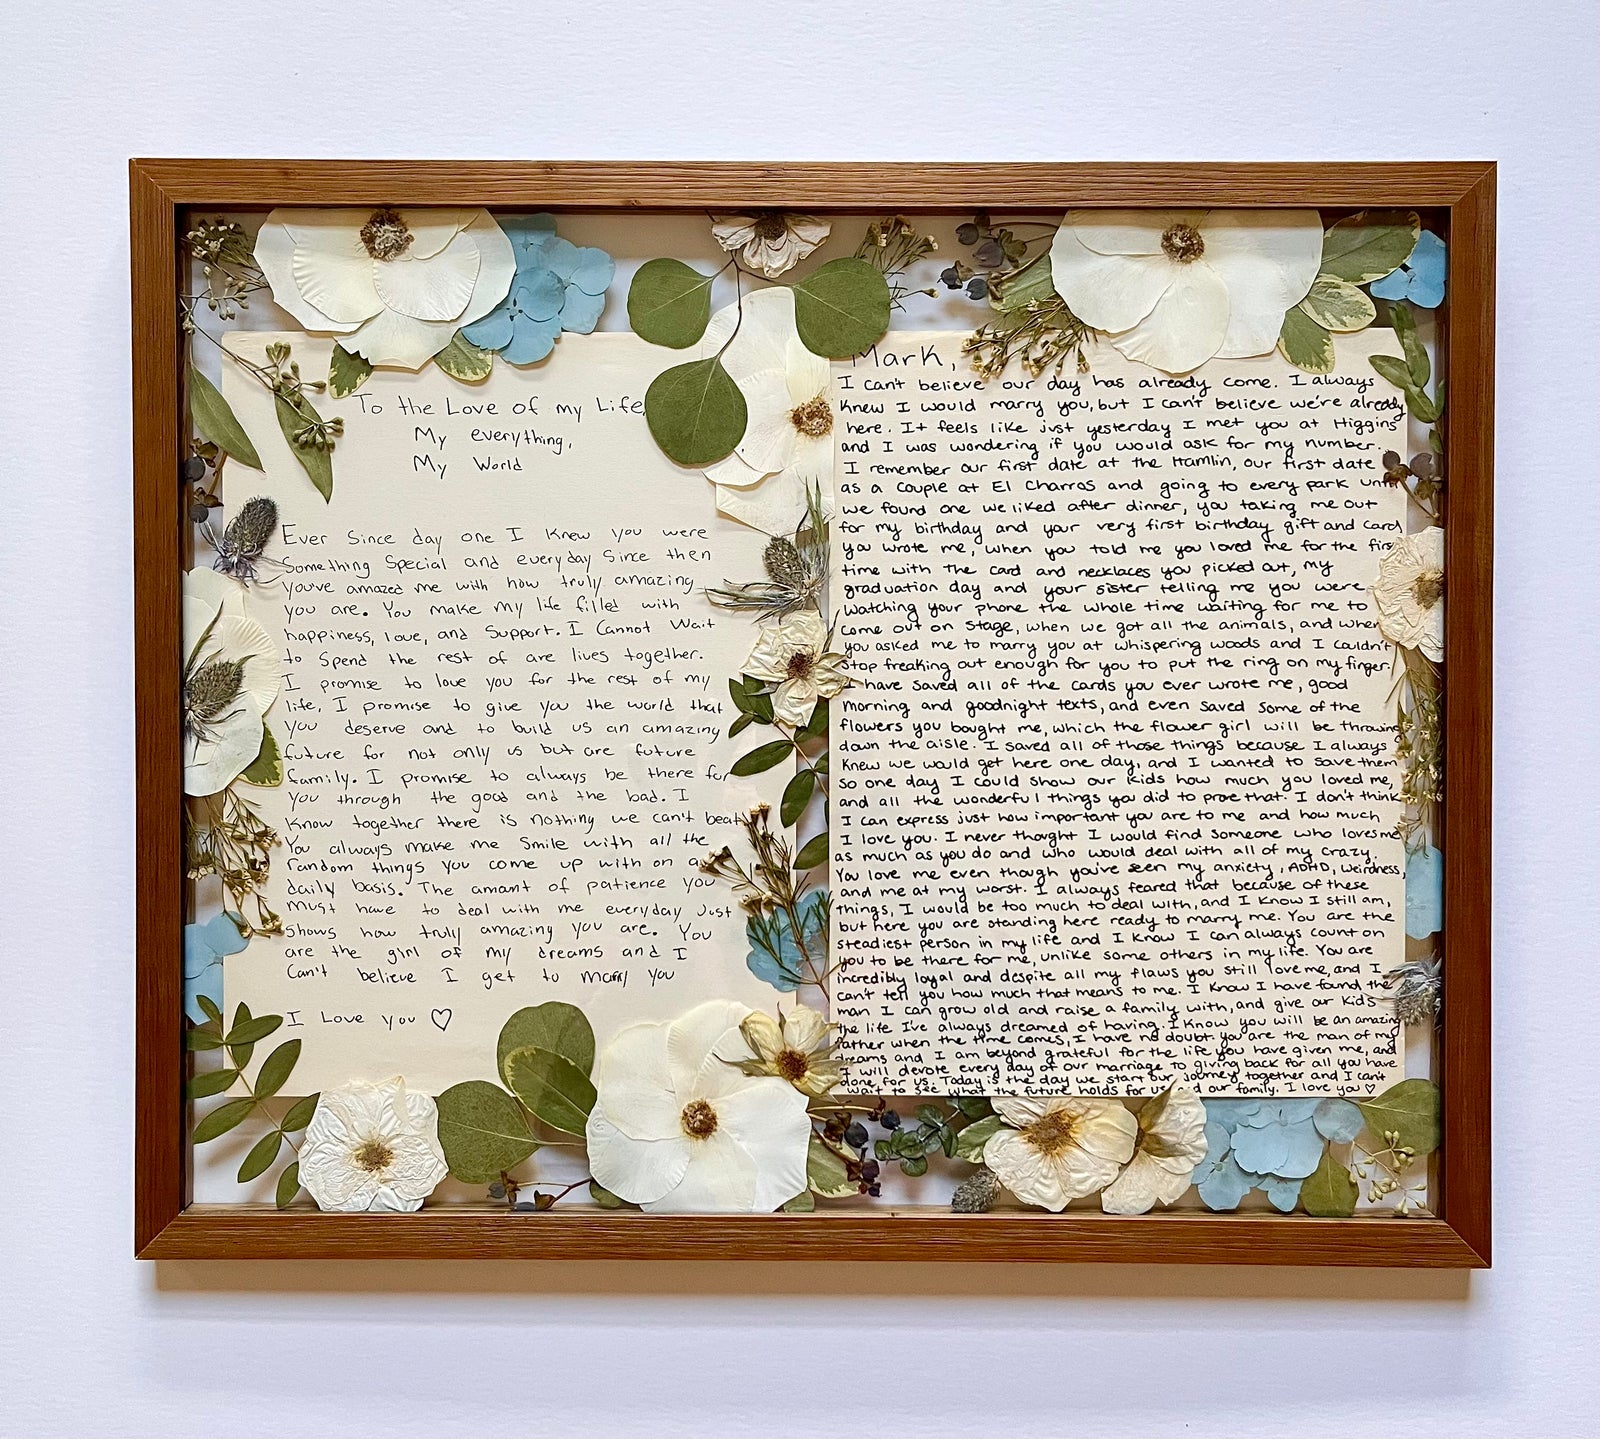 To the Love of my Life,
My everything,
My World
Ever Since day one I knew you were
Something Special and everyday Since then
you've amazed me with how truly amazing
you are. You make my life filled with
happiness, love, and Support. I Cannot Wait
to Spend the rest of are lives together.
I promise to love you for the rest of my
life, I promise to give you the world that
you deserve and to build us an amazing
future for not only us but are future
family. I promise to always be there for
you through the good and the bad. I
Know together there is nothing we can't beat
You always make me Smile with all the
random things you come up with on a
daily basis. The amant of patience you
must have to deal with me everyday Just
Shows how truly amazing you are. You
are the girl of my dreams and I
Can't believe I get to marry you
I Love you ♡
Mark,
I can't believe our day has already come. I always
Knew I would marry you, but I can't believe we're already
here. It feels like just yesterday I met you at Higgins
and I was wondering if you would ask for my number.
I remember our first date at the Hamlin, our first date
as a couple at El Charros and going to every park until
we found one we liked after dinner, you taking me out
for my birthday and your very first birthday gift and card
you wrote me, when you told me you loved me for the first
time with the card and necklaces you picked out, my
graduation day and your sister telling me you were
watching your phone the whole time waiting for me to
come out on stage, when we got all the animals, and when
you asked me to marry you at whispering woods and I couldn't
stop freaking out enough for you to put the ring on my finger.
I have saved all of the cards you ever wrote me, good
morning and goodnight texts, and even saved some of the
flowers you bought me, which the flower girl will be throwing
down the aisle. I saved all of those things because I always
Knew we would get here one day, and I wanted to save them
so one day I could show our kids how much you loved me,
and all the wonderful things you did to prove that. I don't think
I can express just how important you are to me and how much
I love you. I never thought I would find someone who loves me
as much as you do and who would deal with all of my crazy.
You love me even though you've seen my anxiety, ADHD, weirdness,
and me at my worst. I always feared that because of these
things, I would be too much to deal with, and I know I still am,
but here you are standing here ready to marry me. You are the
steadiest person in my life and I know I can always count on
you to be there for me, unlike some others in my life. You are
incredibly loyal and despite all my flaws you still love me, and I
can't tell you how much that means to me. I know I have found the
man I can grow old and raise a family with, and give our kids
the life I've always dreamed of having. I know you will be an amazing
father when the time comes, I have no doubt. you are the man of my
dreams and I am beyond grateful for the life you have given me, and
I will devote every day of our marriage to giving back for all you have
done for us. Today is the day we start our journey together and I can't
wait to see what the future holds for us and our family. I love you ♡